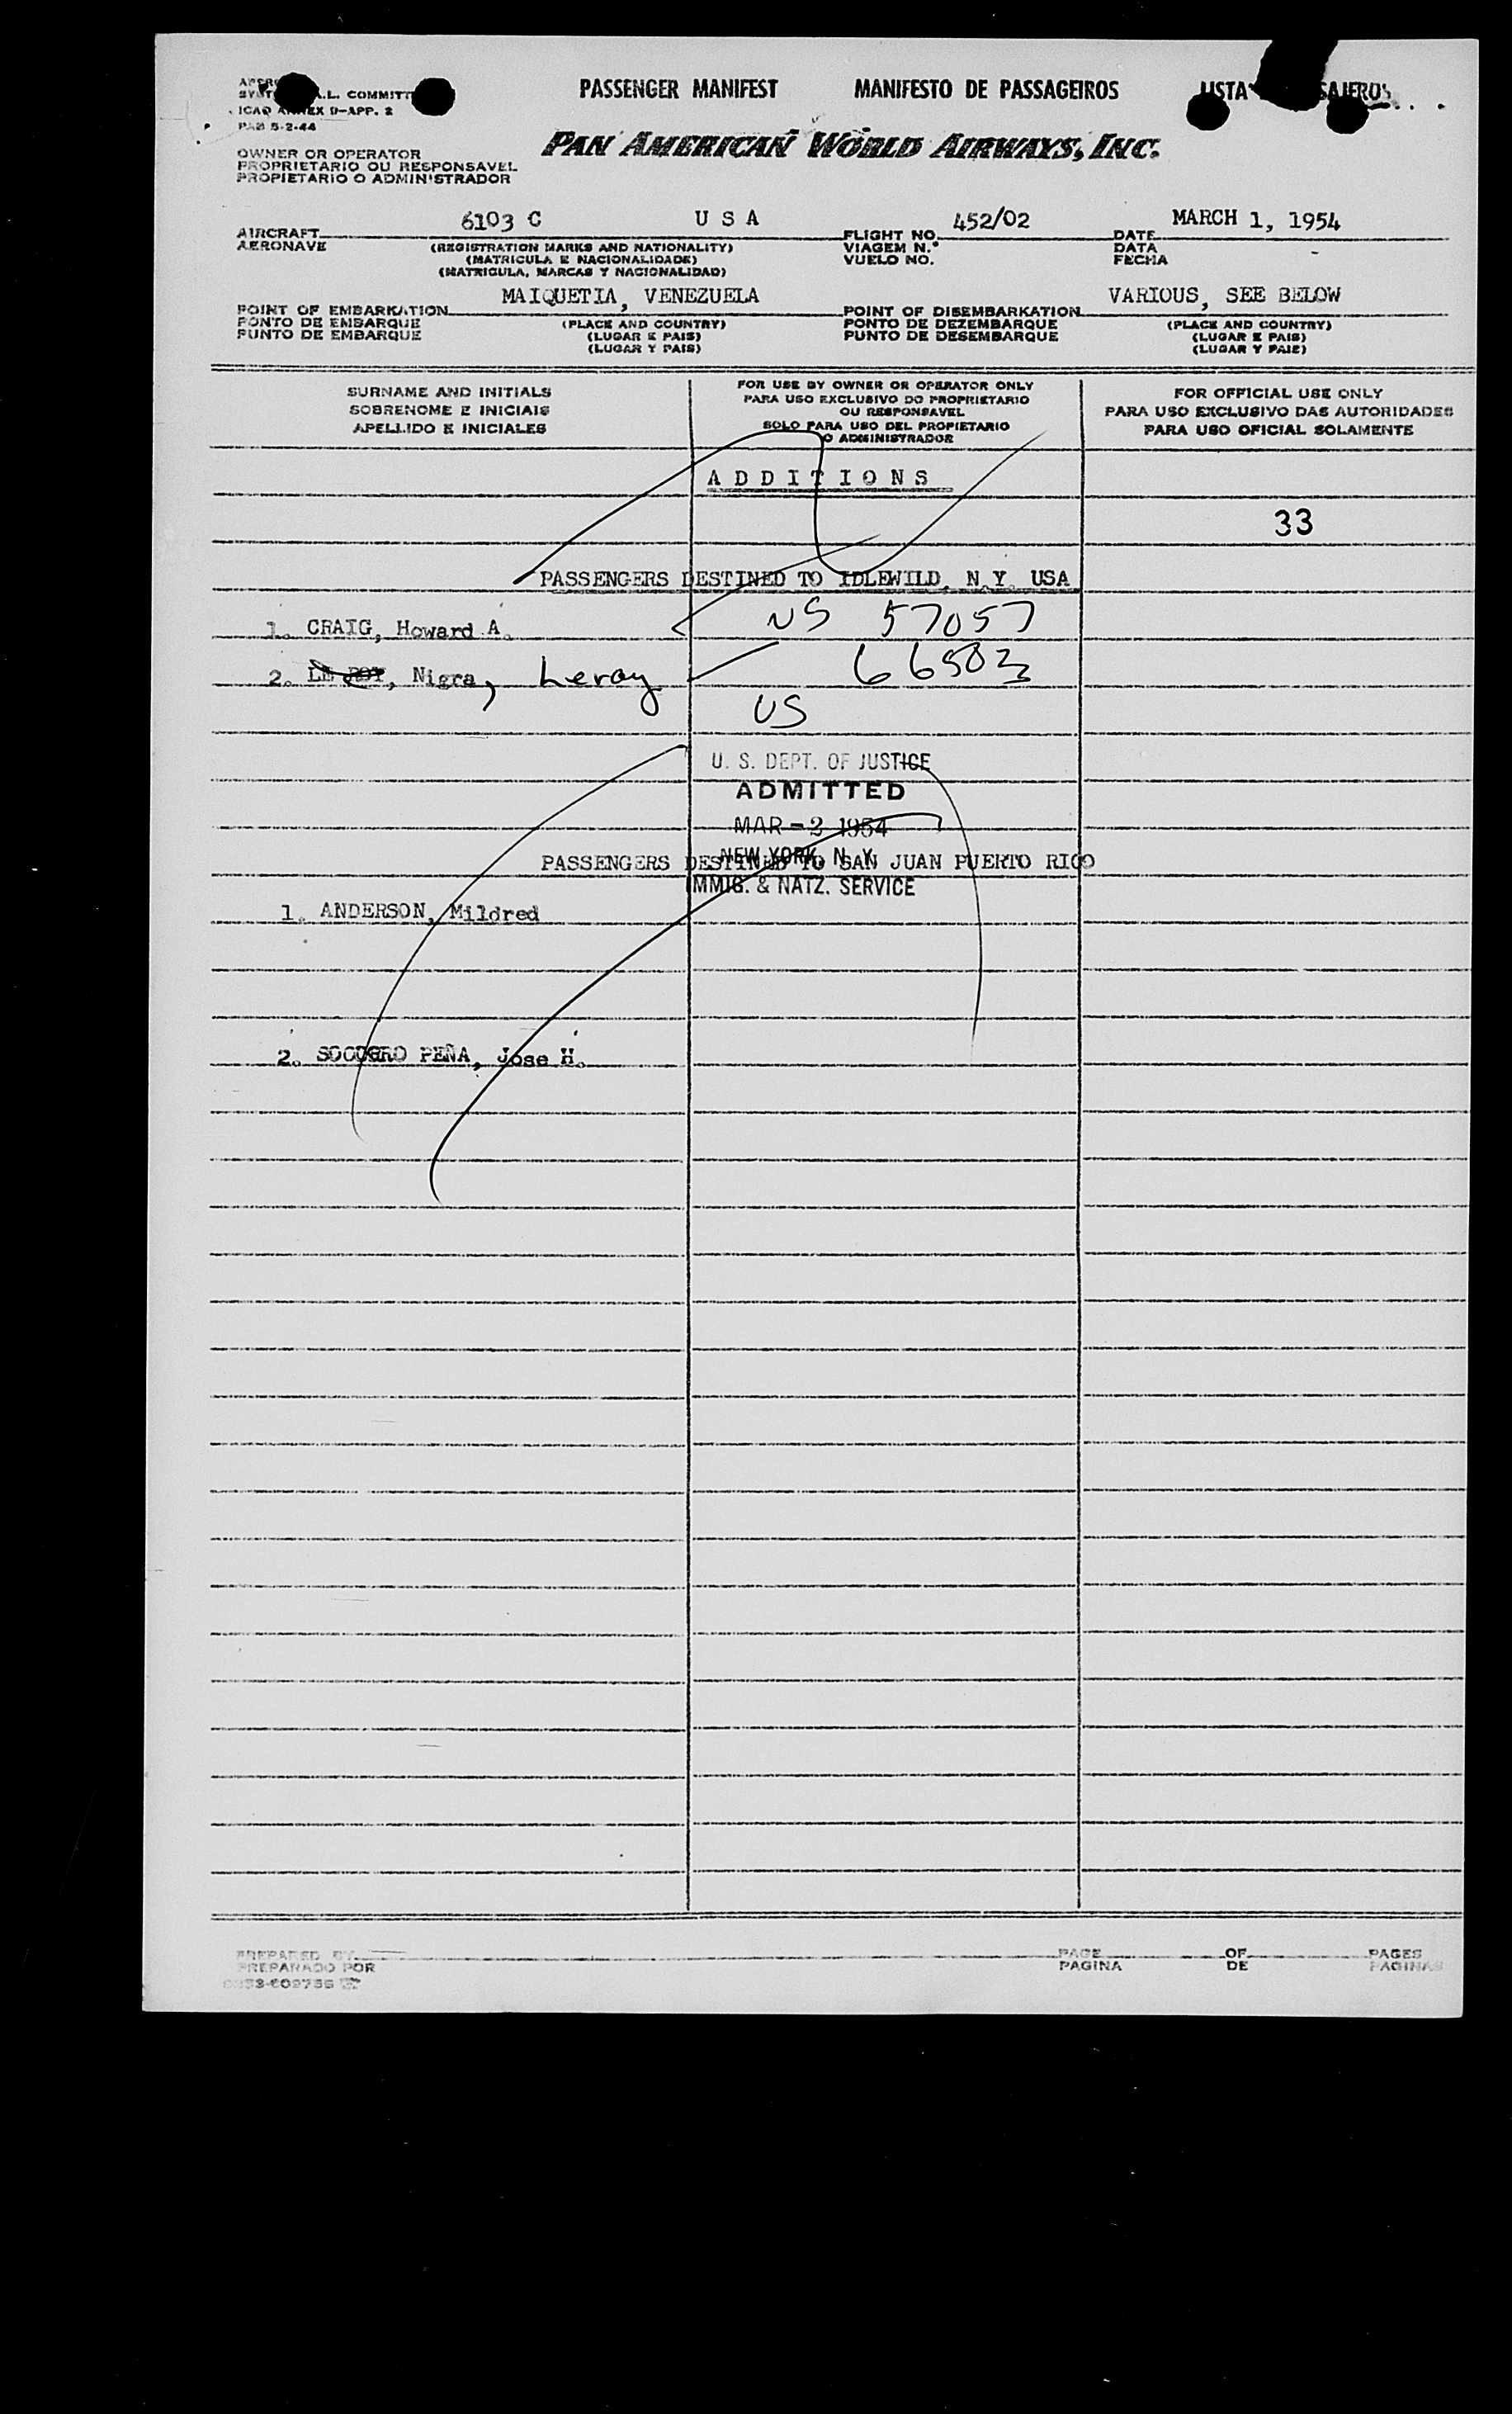 PASSENGER MANIFEST MANIFESTO DE PASSAGEIROS LISTA
.L. COMMITT
ICAO ANNEX 9-APP. 2
PAB 5-2-44
PAN AMERICAN WORLD AIRWAYS, INC.
OWNER OR OPERATOR
PROPRIETARIO OU RESPONSAVEL
PROPIETARIO O ADMINISTRADOR
6103 C U S A 452/02 MARCH 1, 1954
AIRCRAFT FLIGHT NO. DATE
AERONAVE (REGISTRATION MARKS AND NATIONALITY) VIAGEM N.º DATA
(MATRICULA E NACIONALIDADE) VUELO NO. FECHA
(MATRICULA, MARCAS Y NACIONALIDAD)
MAIQUETIA, VENEZUELA VARIOUS, SEE BELOW
POINT OF EMBARKATION POINT OF DISEMBARKATION
PONTO DE EMBARQUE (PLACE AND COUNTRY) PONTO DE DEZEMBARQUE (PLACE AND COUNTRY)
PUNTO DE EMBARQUE (LUGAR E PAIS) PUNTO DE DESEMBARQUE (LUGAR E PAIS)
(LUGAR Y PAIS) (LUGAR Y PAIS)
SURNAME AND INITIALS
SOBRENOME E INICIAIS
APELLIDO E INICIALES
FOR USE BY OWNER OR OPERATOR ONLY
PARA USO EXCLUSIVO DO PROPRIETARIO
OU RESPONSAVEL
SOLO PARA USO DEL PROPIETARIO
O ADMINISTRADOR
FOR OFFICIAL USE ONLY
PARA USO EXCLUSIVO DAS AUTORIDADES
PARA USO OFICIAL SOLAMENTE
A D D I T I O N S
33
PASSENGERS DESTINED TO IDLEWILD, N.Y. USA
1. CRAIG, Howard A. US 57057
2. LE ROY, Nigra, Leroy 66503
US
U. S. DEPT. OF JUSTICE
ADMITTED
MAR - 2 1954
NEW YORK, N. Y.
PASSENGERS DESTINED TO SAN JUAN PUERTO RICO
IMMIG. & NATZ. SERVICE
1. ANDERSON, Mildred
2. SOCORRO PEÑA, Jose H.
PREPARED BY PAGE OF PAGES
PREPARADO POR PAGINA DE PAGINAS